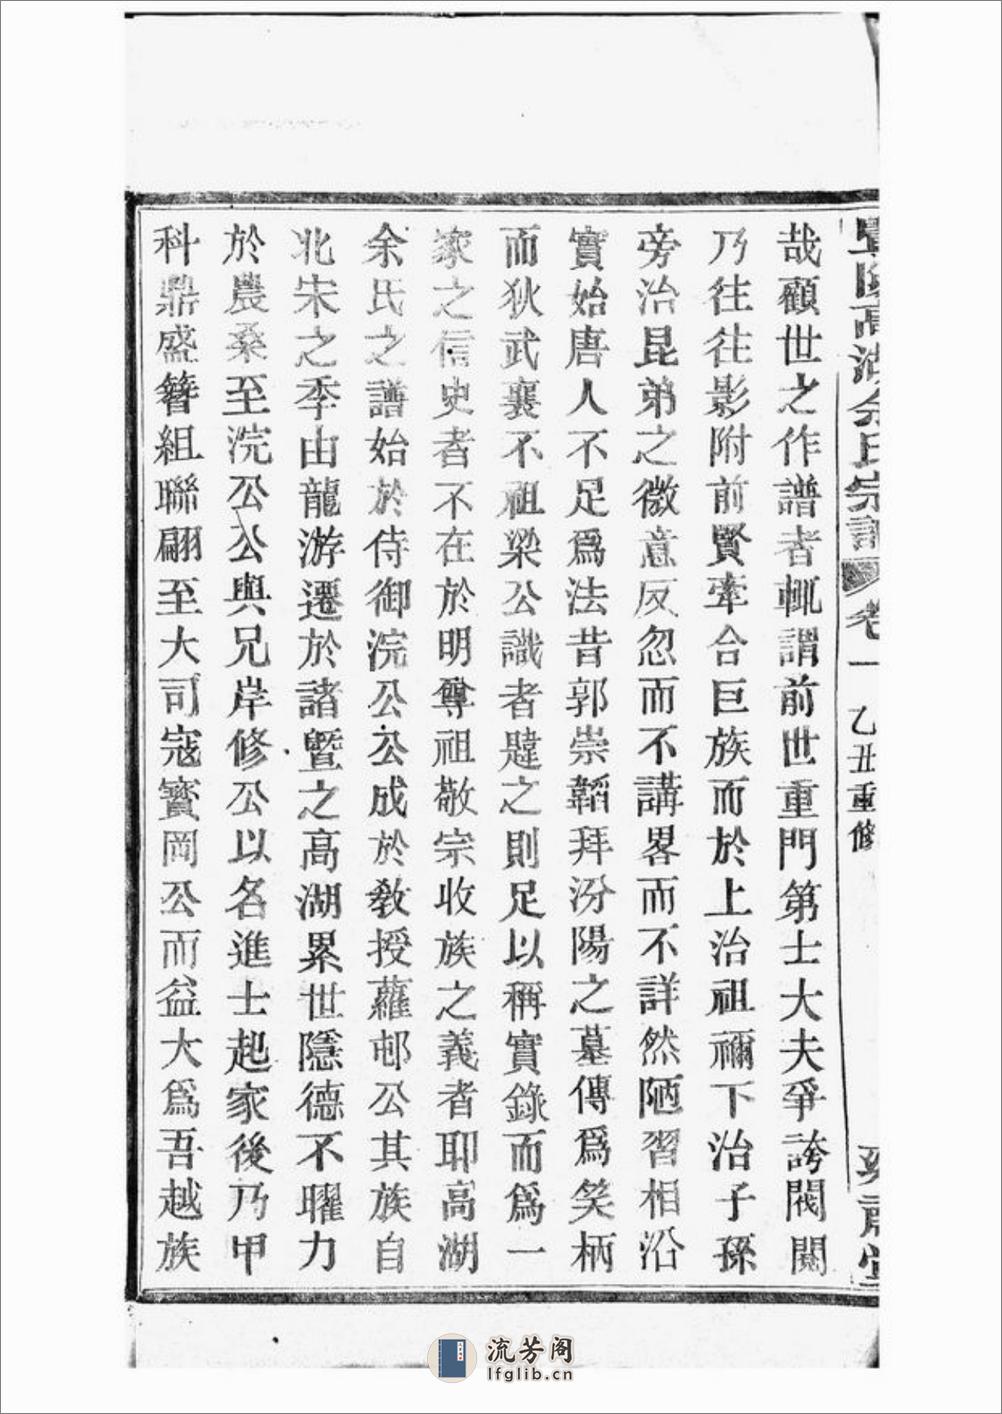 暨陽高湖余氏宗譜 卷一 乙丑重修
哉顧世之作譜者輒謂前世重門第士大夫爭誇閥閱
乃徃徃影附前賢牽合巨族而於上治祖禰下治子孫
旁治昆弟之微意反忽而不講畧而不詳然陋習相沿
實始唐人不足爲法昔郭崇韜拜汾陽之墓傳爲笑柄
而狄武襄不祖梁公識者韙之則足以稱實錄而爲一
家之信史者不在於明尊祖敬宗收族之義者耶高湖
余氏之譜始於侍御浣公公成於敎授蘿邨公其族自
北宋之季由龍游遷於諸曁之高湖累世隱德不曜力
於農桑至浣公公與兄岸修公以各進士起家後乃甲
科鼎盛簪組聯翩至大司寇寳岡公而益大爲吾越族
流芳阁
lfglib.cn